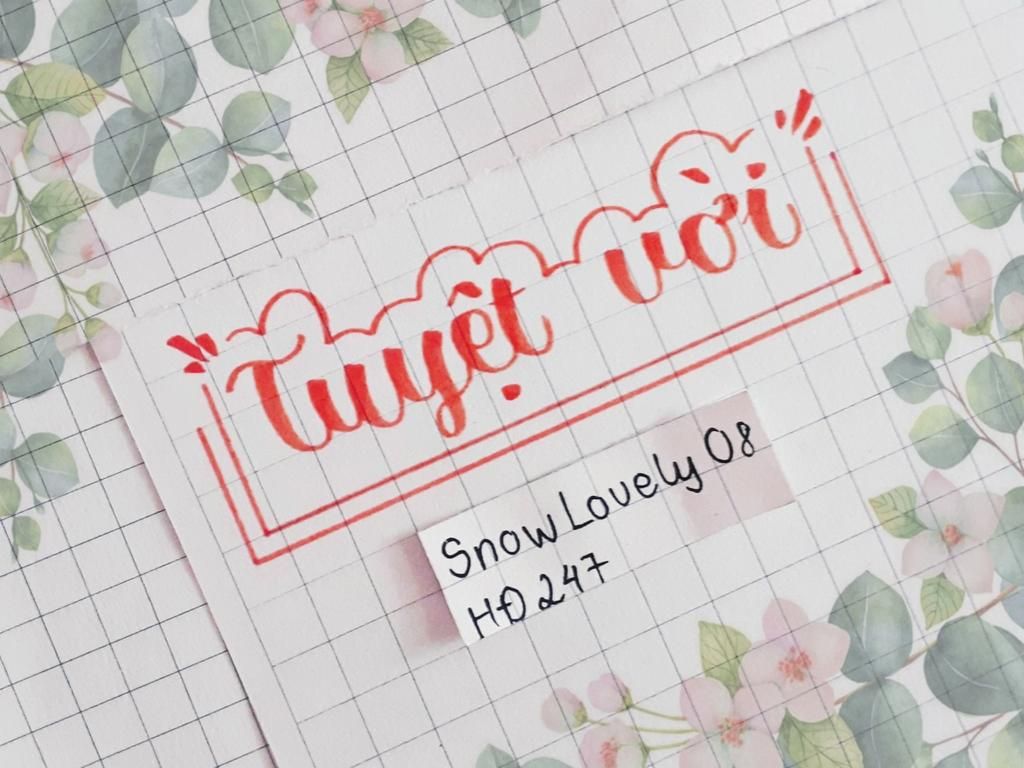 Tuyệt vời
SnowLovely08
HĐ 247